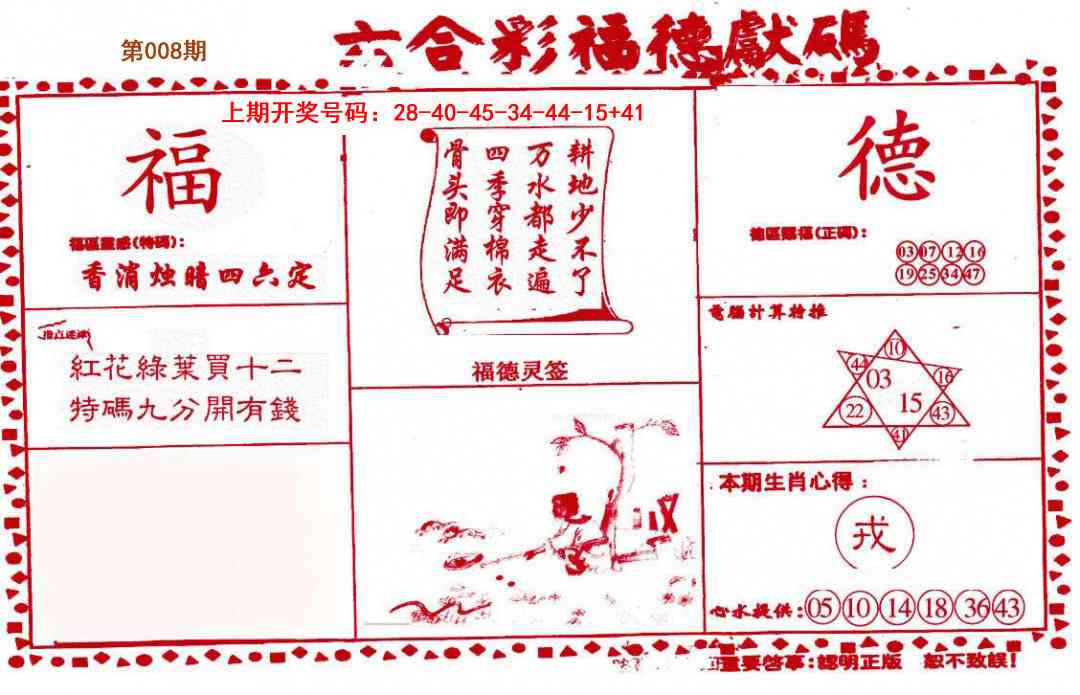 第008期
六合彩福德獻碼
上期开奖号码：28-40-45-34-44-15+41
福
福區靈感(特碼)：
香消烛暗四六定
紅花綠葉買十二
特碼九分開有錢
耕地少不了
万水都走遍
四季穿棉衣
骨头即满足
福德灵签
德
德區賜福(正碼)：
03 07 12 16
19 25 34 47
電腦計算特推
10
44 03 16
22 15 43
41
本期生肖心得：
戎
心水提供：05 10 14 18 36 43
重要啓事：認明正版 恕不致誤！